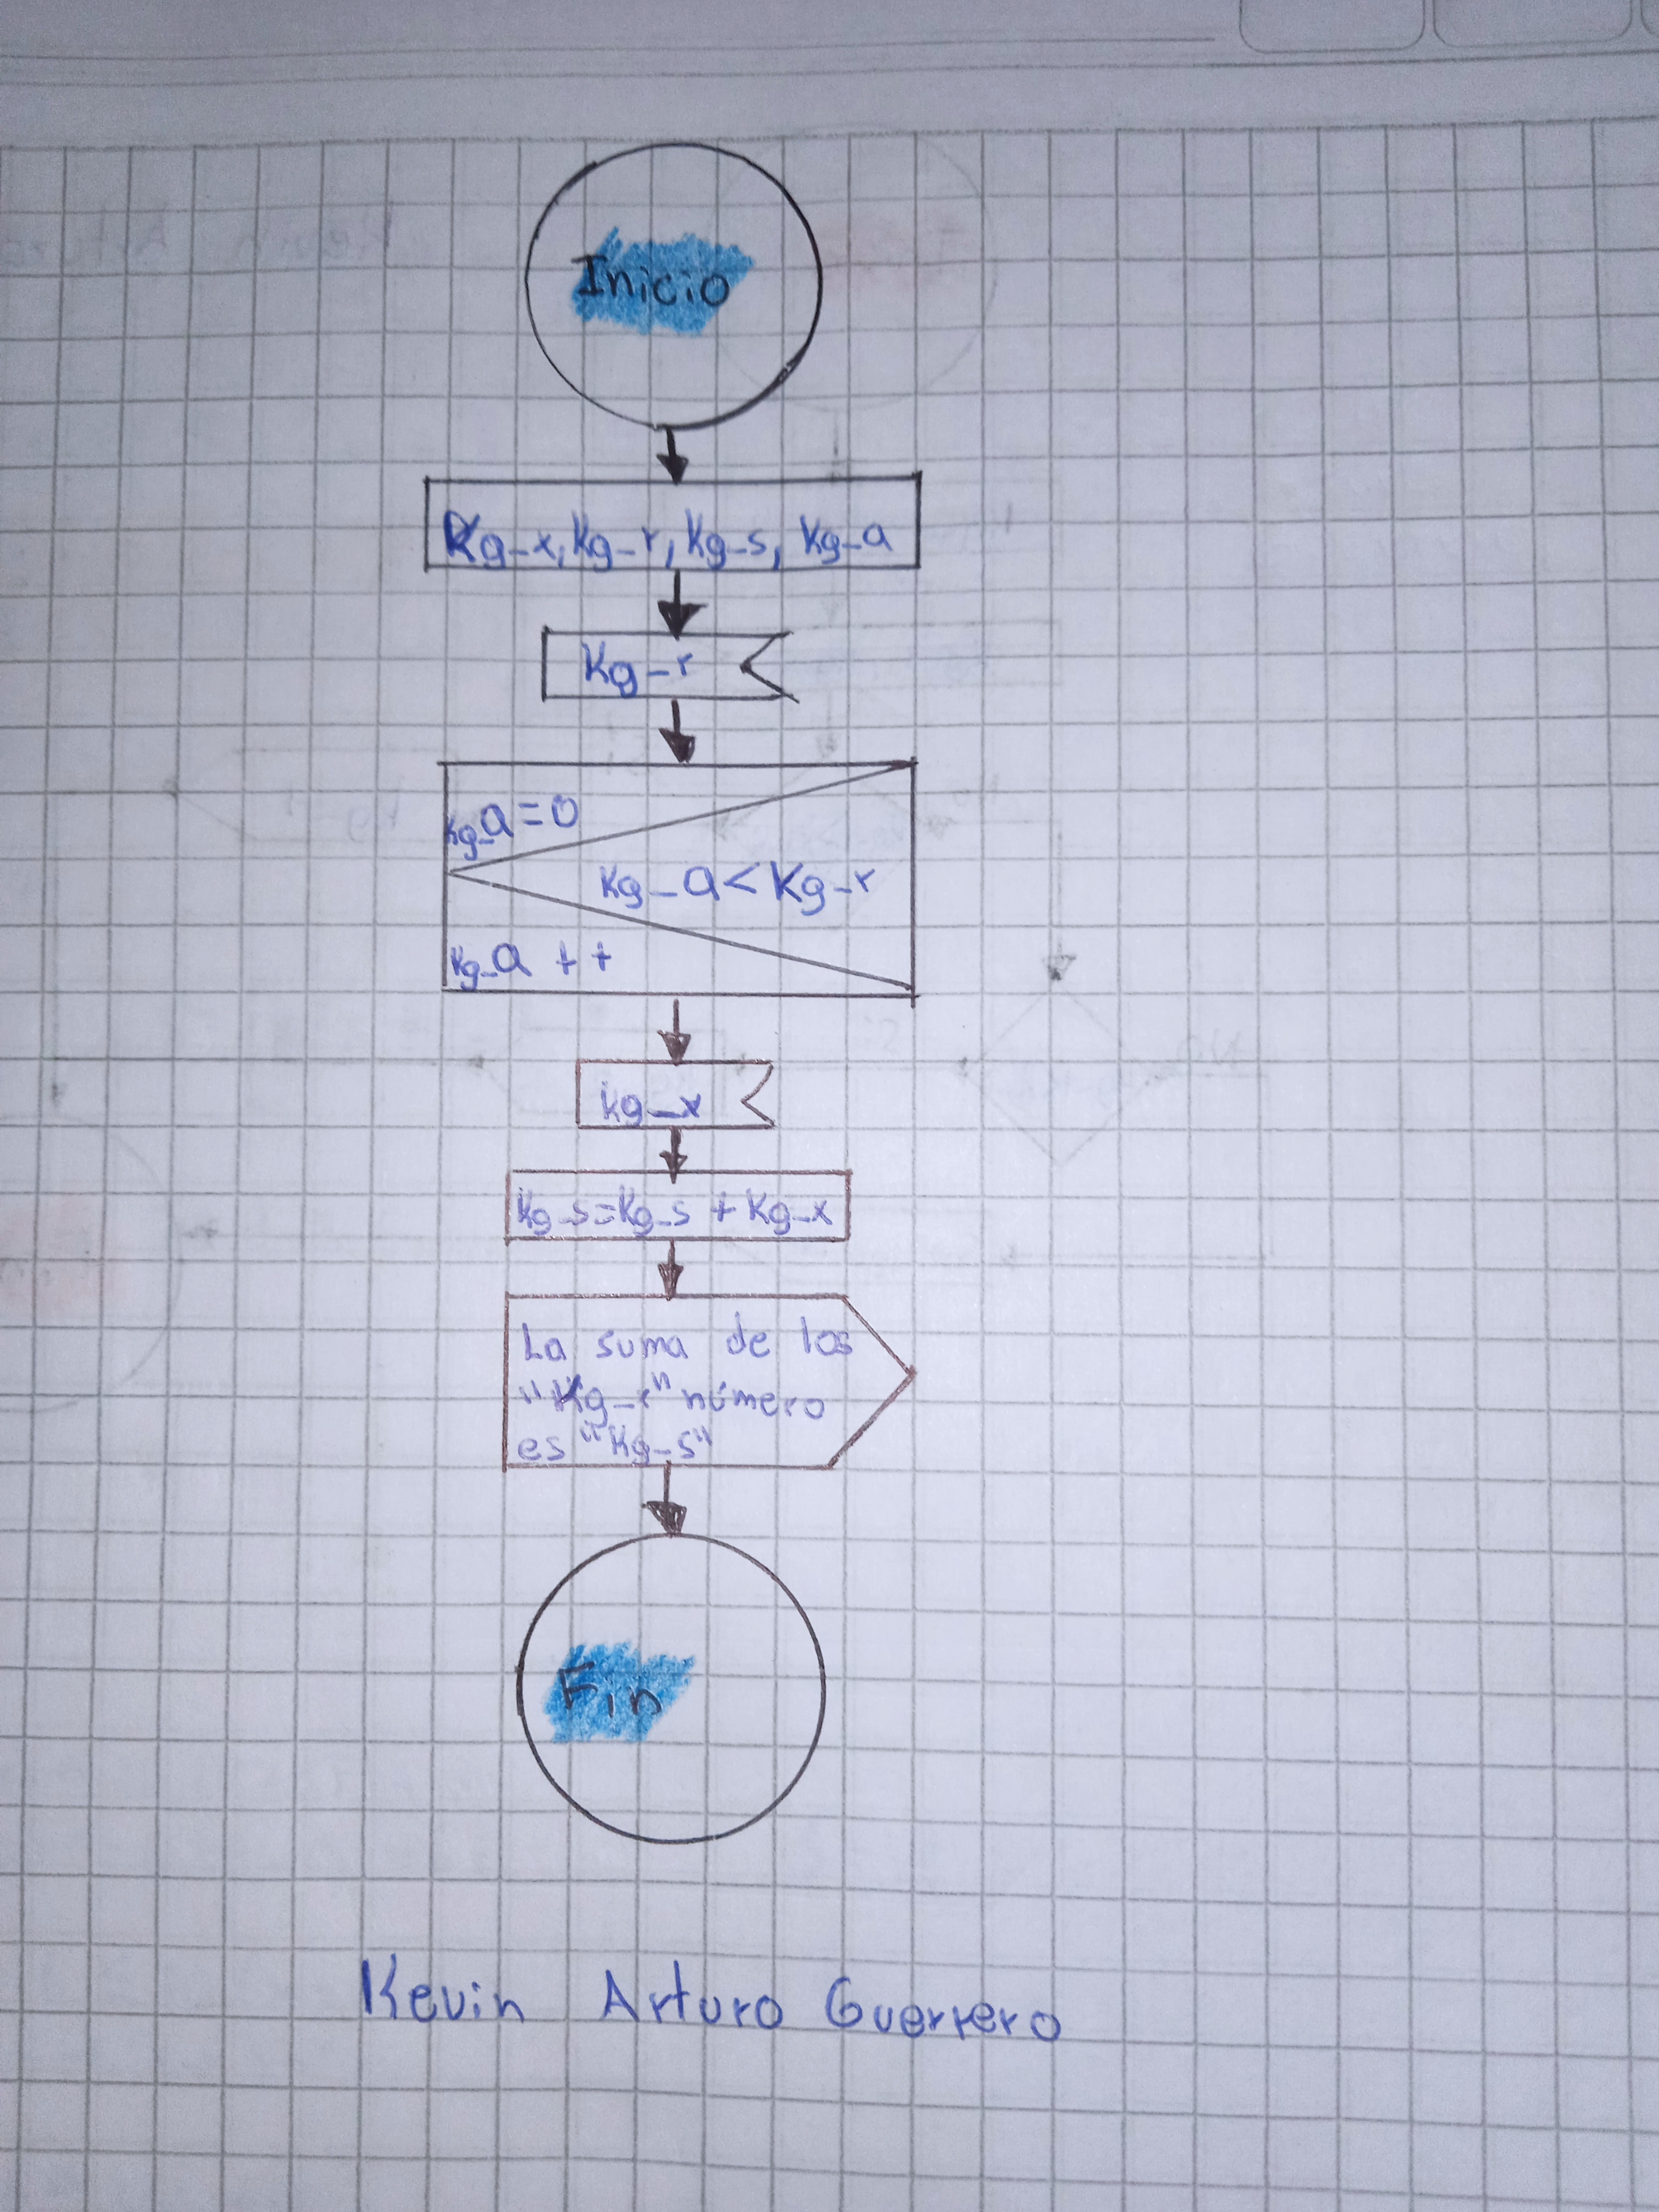 Inicio
Kg_x, Kg_r, Kg_s, Kg_a
Kg_r
Kg_a=0
Kg_a<Kg_r
Kg_a ++
Kg_x
Kg_s=Kg_s + Kg_x
La suma de los
"Kg_r" número
es "Kg_s"
Fin
Kevin Arturo Guerrero